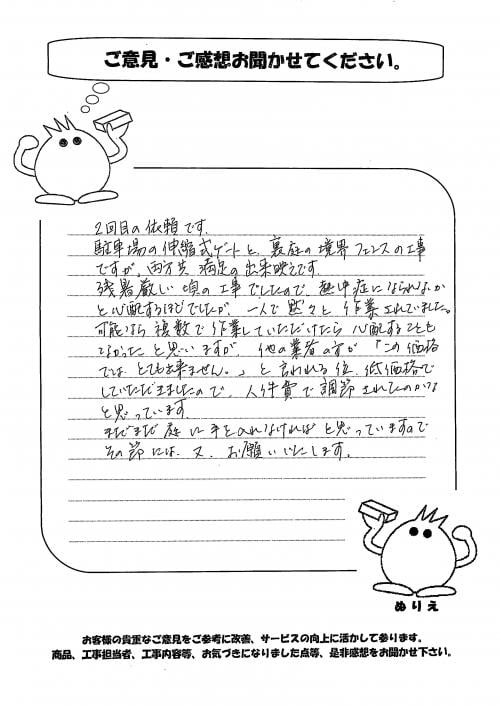 ご意見・ご感想お聞かせてください。
2回目の依頼です.
駐車場の伸縮式ゲートと、裏庭の境界フェンスの工事
ですが、両方共 満足の出来映えです.
残暑厳しい頃の工事でしたので、熱中症になられないか
と心配するほどでしたが、一人で黙々と作業されていました。
可能なら複数で作業していただけたら心配することも
なかったと思いますが、他の業者の方が「この価格
では とても出来ません。」と言われる位、低価格で
していただきましたので、人件費で調節されたのかな
と思っています.
まだまだ庭に手を入れなければと思っていますので
その節には、又、お願いいたします。
ぬりえ
お客様の貴重なご意見をご参考に改善、サービスの向上に活かして参ります。
商品、工事担当者、工事内容等、お気づきになりました点等、是非感想をお聞かせ下さい。